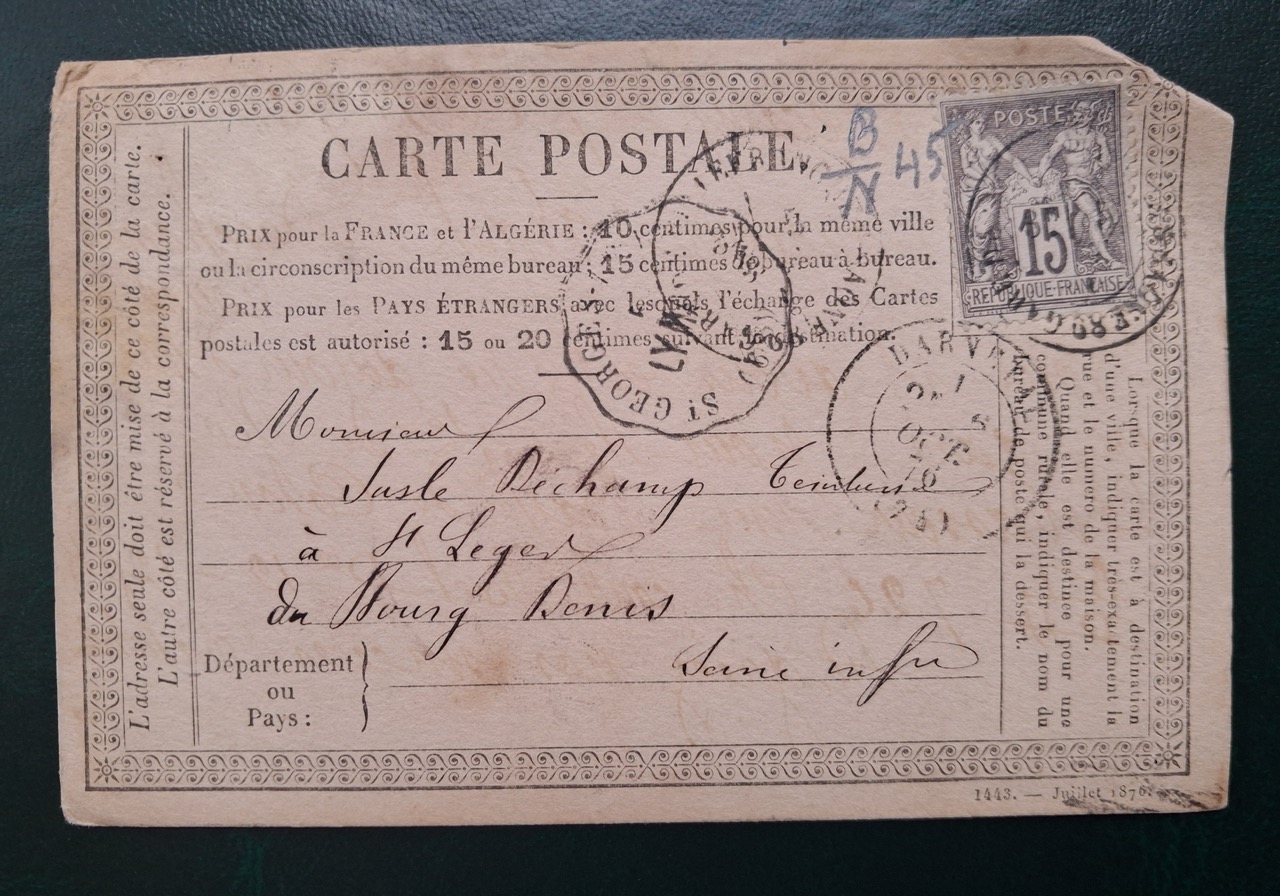 CARTE POSTALE
B
N 45
POSTE
15
REPUBLIQUE-FRANÇAISE
PRIX pour la FRANCE et l'ALGÉRIE : 10 centimes pour la même ville
ou la circonscription du même bureau : 15 centimes de bureau à bureau.
PRIX pour les PAYS ÉTRANGERS avec lesquels l'échange des Cartes
postales est autorisé : 15 ou 20 centimes suivant la destination.
ST GEORGE
DARNETAL
OCT
76
Monsieur
Déchamp Teinturier
à St Leger
du Bourg Denis
Seine infre
Département
ou
Pays :
L'adresse seule doit être mise de ce côté de la carte.
L'autre côté est réservé à la correspondance.
Lorsque la carte est à destination
d'une ville, indiquer très-exactement la
rue et le numéro de la maison.
Quand elle est destinée pour une
commune rurale, indiquer le nom du
bureau de poste qui la dessert.
1443. — Juillet 1876.